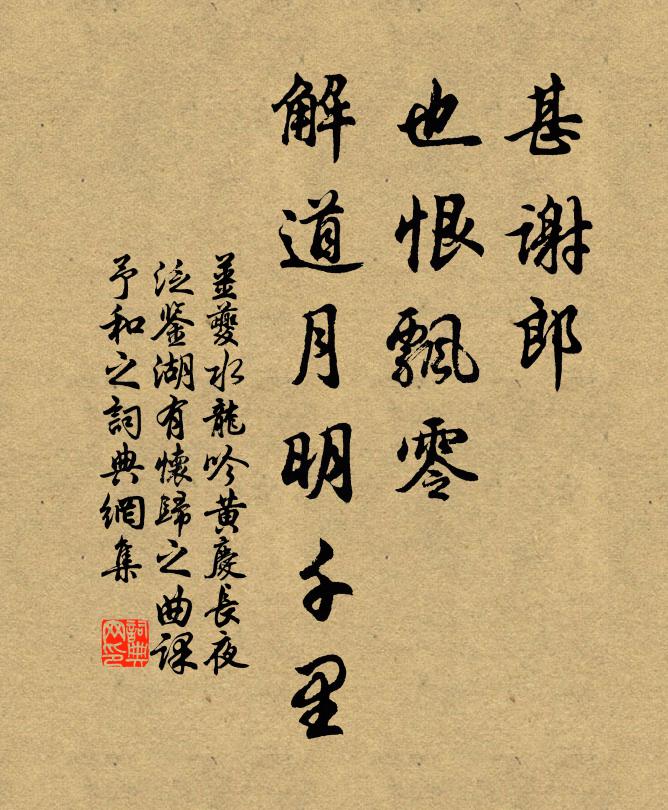 甚謝郎
也恨飄零
解道月明千里
姜夔水龍吟黄慶長夜
泛鉴湖有懷歸之曲課
予和之詞典網集
詞典
网印